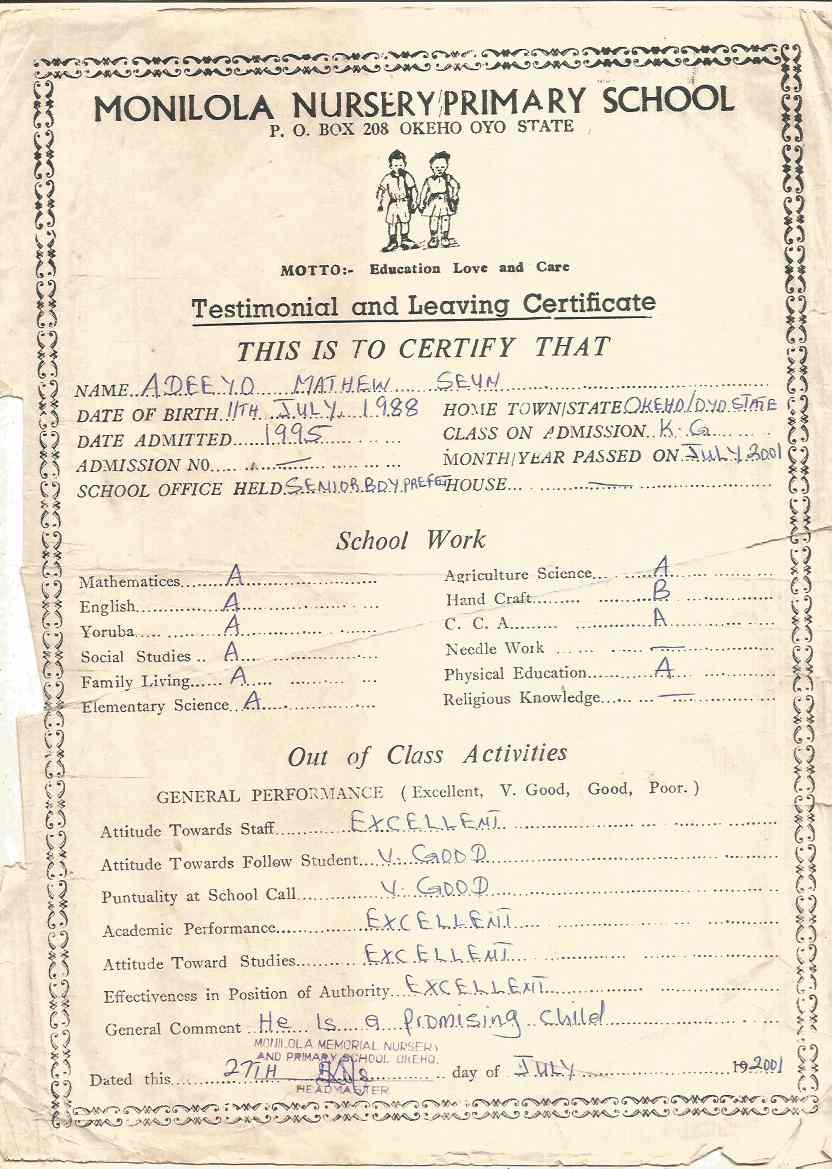 MONILOLA NURSERY/PRIMARY SCHOOL
P. O. BOX 208 OKEHO OYO STATE
MOTTO:- Education Love and Care
Testimonial and Leaving Certificate
THIS IS TO CERTIFY THAT
NAME ADEEYO MATHEW SEUN
DATE OF BIRTH 11TH JULY, 1988 HOME TOWN/STATE OKEHO/OYO STATE
DATE ADMITTED 1995 CLASS ON ADMISSION K.G
ADMISSION NO. — MONTH/YEAR PASSED ON JULY 2001
SCHOOL OFFICE HELD SENIOR BOY PREFET HOUSE —
School Work
Mathematices A Agriculture Science A
English A Hand Craft B
Yoruba A C. C. A A
Social Studies A Needle Work —
Family Living A Physical Education A
Elementary Science A Religious Knowledge —
Out of Class Activities
GENERAL PERFORMANCE (Excellent, V. Good, Good, Poor.)
Attitude Towards Staff EXCELLENT
Attitude Towards Follow Student V. GOOD
Puntuality at School Call V. GOOD
Academic Performance EXCELLENT
Attitude Toward Studies EXCELLENT
Effectiveness in Position of Authority EXCELLENT
General Comment He Is a promising child
MONILOLA MEMORIAL NURSERY
AND PRIMARY SCHOOL OKEHO.
Dated this 27TH day of JULY 19 2001
HEADMASTER